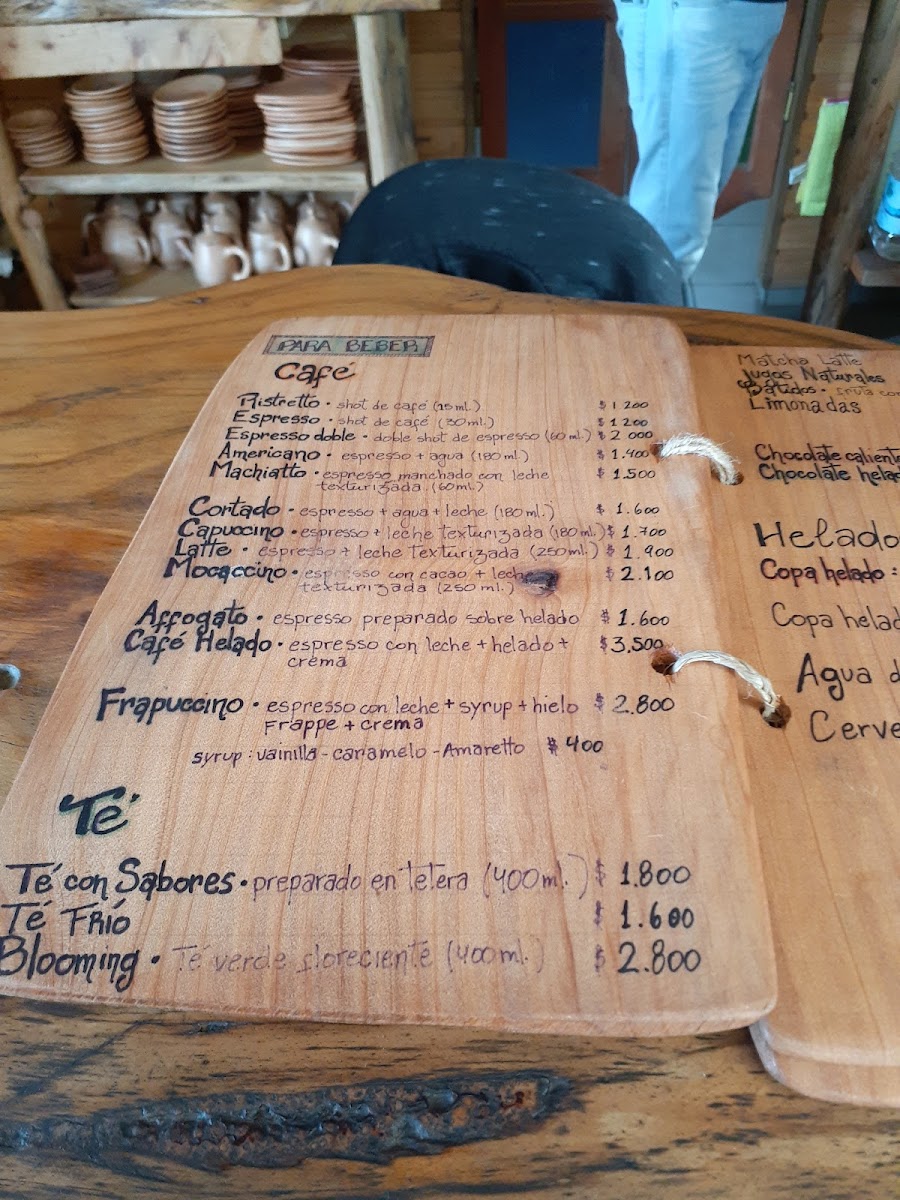 PARA BEBER
Café
Ristretto · shot de café (15ml.) $1 200
Espresso · shot de café (30ml.) $1 200
Espresso doble · doble shot de espresso (60 ml.) $2 000
Americano · espresso + agua (180 ml.) $1.400
Machiatto · espresso manchado con leche $1.500
texturizada (60ml.)
Cortado · espresso + agua + leche (180 ml.) $1.600
Capuccino · espresso + leche texturizada (180 ml.) $1.700
Latte · espresso + leche texturizada (250 ml.) $1.900
Mocaccino · espresso con cacao + leche $2.100
texturizada (250 ml.)
Affogato · espresso preparado sobre helado $1.600
Café Helado · espresso con leche + helado + $3.500
crema
Frapuccino · espresso con leche + syrup + hielo $2.800
Frappe + crema
syrup : vainilla - caramelo - Amaretto $400
Té
Té con Sabores · preparado en tetera (400 ml.) $1.800
Té Frío $1.600
Blooming · Té verde floreciente (400ml.) $2.800
Matcha Latte
Jugos Naturales
Batidos · fruta con
Limonadas
Chocolate caliente
Chocolate helad
Helado
Copa helado :
Copa helad
Agua d
Cerve